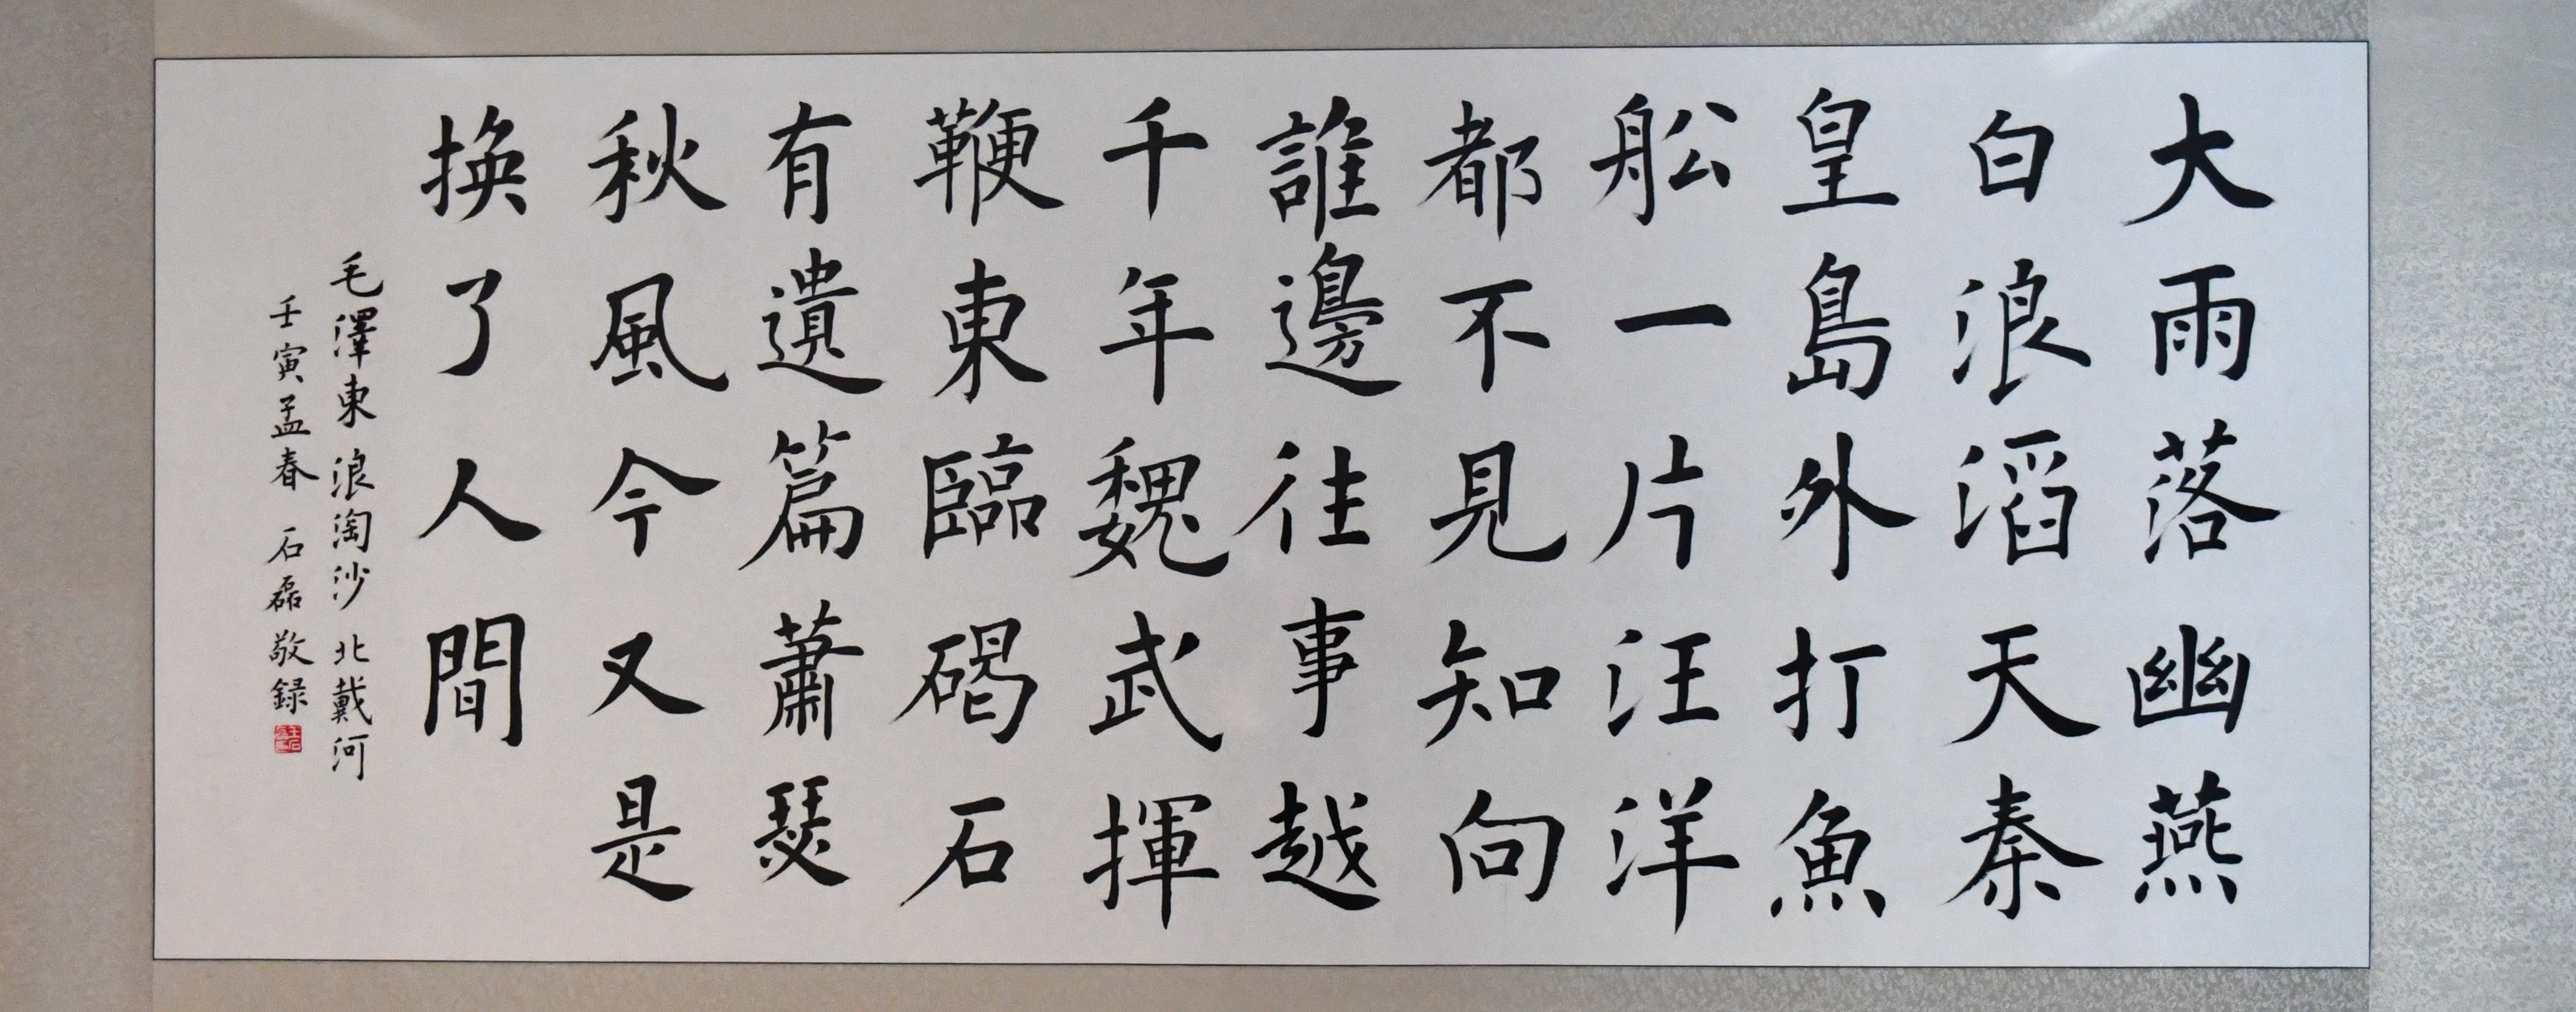 大雨落幽燕
白浪滔天秦
皇島外打魚
舩一片汪洋
都不見知向
誰邊往事越
千年魏武揮
鞭東臨碣石
有遺篇蕭瑟
秋風今又是
換了人間
毛澤東 浪淘沙 北戴河
壬寅孟春 石磊 敬録